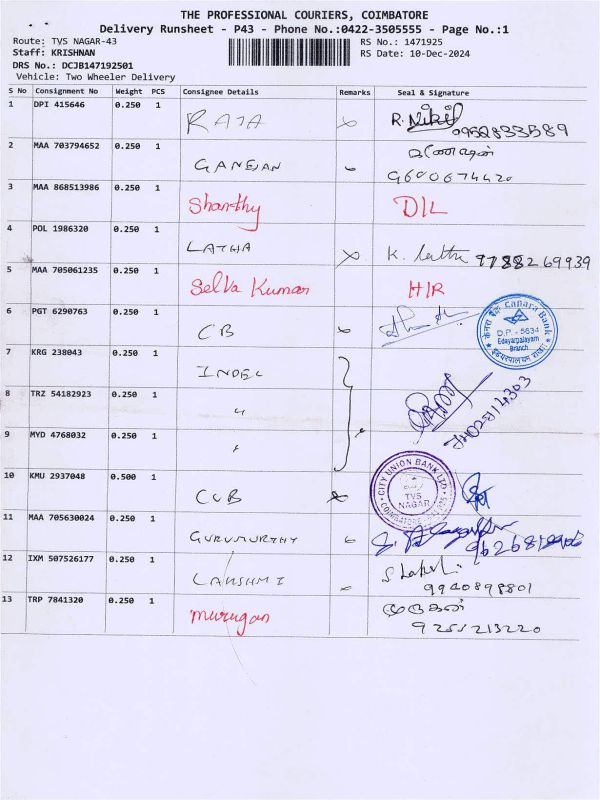 THE PROFESSIONAL COURIERS, COIMBATORE
Delivery Runsheet - P43 - Phone No.:0422-3505555 - Page No.:1
Route: TVS NAGAR-43 RS No.: 1471925
Staff: KRISHNAN RS Date: 10-Dec-2024
DRS No.: DCJB147192501
Vehicle: Two Wheeler Delivery
S No Consignment No Weight PCS Consignee Details Remarks Seal & Signature
1 DPI 415646 0.250 1 RAJA R. Nikil
9952833589
2 MAA 703794652 0.250 1 GANESAN
9600674420
3 MAA 868513986 0.250 1 Shanthy DIL
4 POL 1986320 0.250 1 LATHA K. Latha 9788269939
5 MAA 705061235 0.250 1 Selva Kumar HIR
6 PGT 6290763 0.250 1 CB
Canara Bank
D.P. - 5634
Edayarpalayam
Branch
7 KRG 238043 0.250 1 INDEL
8 TRZ 54182923 0.250 1 "
9 MYD 4768032 0.250 1 "
10 KMU 2937048 0.500 1 CUB
CITY UNION BANK LTD.
TVS
NAGAR
COIMBATORE
11 MAA 705630024 0.250 1 GURUMURTHY
12 IXM 507526177 0.250 1 LAKSHMI
9940898801
13 TRP 7841320 0.250 1 Murugan முருகன்
9255213220